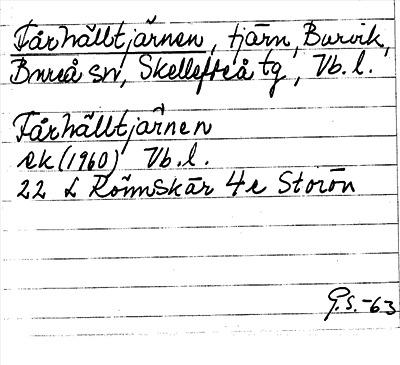 Fårhälltjärnen, tjärn, Burvik,
Bureå sn, Skellefteå tg, Vb. l.
Fårhälltjärnen
ek (1960) Vb. l.
22 L Rönnskär 4e Storön
G.S.-63